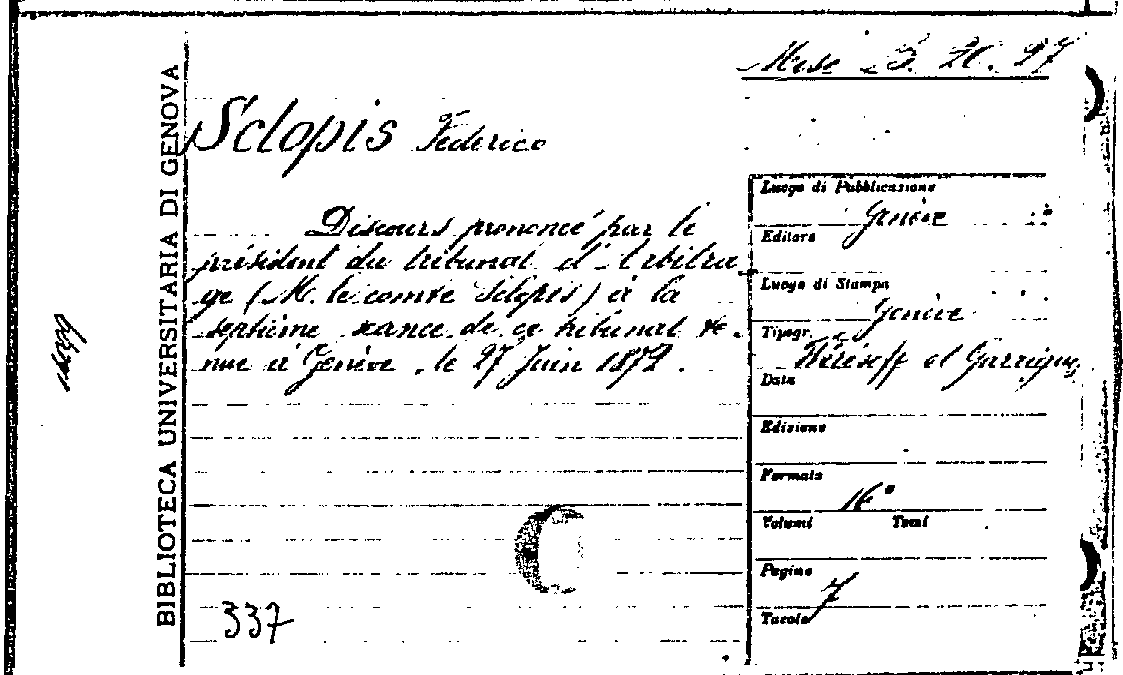 Misc B. 20. 97
BIBLIOTECA UNIVERSITARIA DI GENOVA
Sclopis Federico
Discours prononcé par le
président du tribunal d'Arbitra-
ge (M. le comte Sclopis) à la
septième séance de ce tribunal te-
nue à Genève, le 27 Juin 1872.
337
Luogo di Pubblicazione
Genève
Editore
Luogo di Stampa
Genève
Tipogr.
et Garrigues
Data
Edizione
Formato
16°
Volumi Tomi
Pagine
7
Tavole